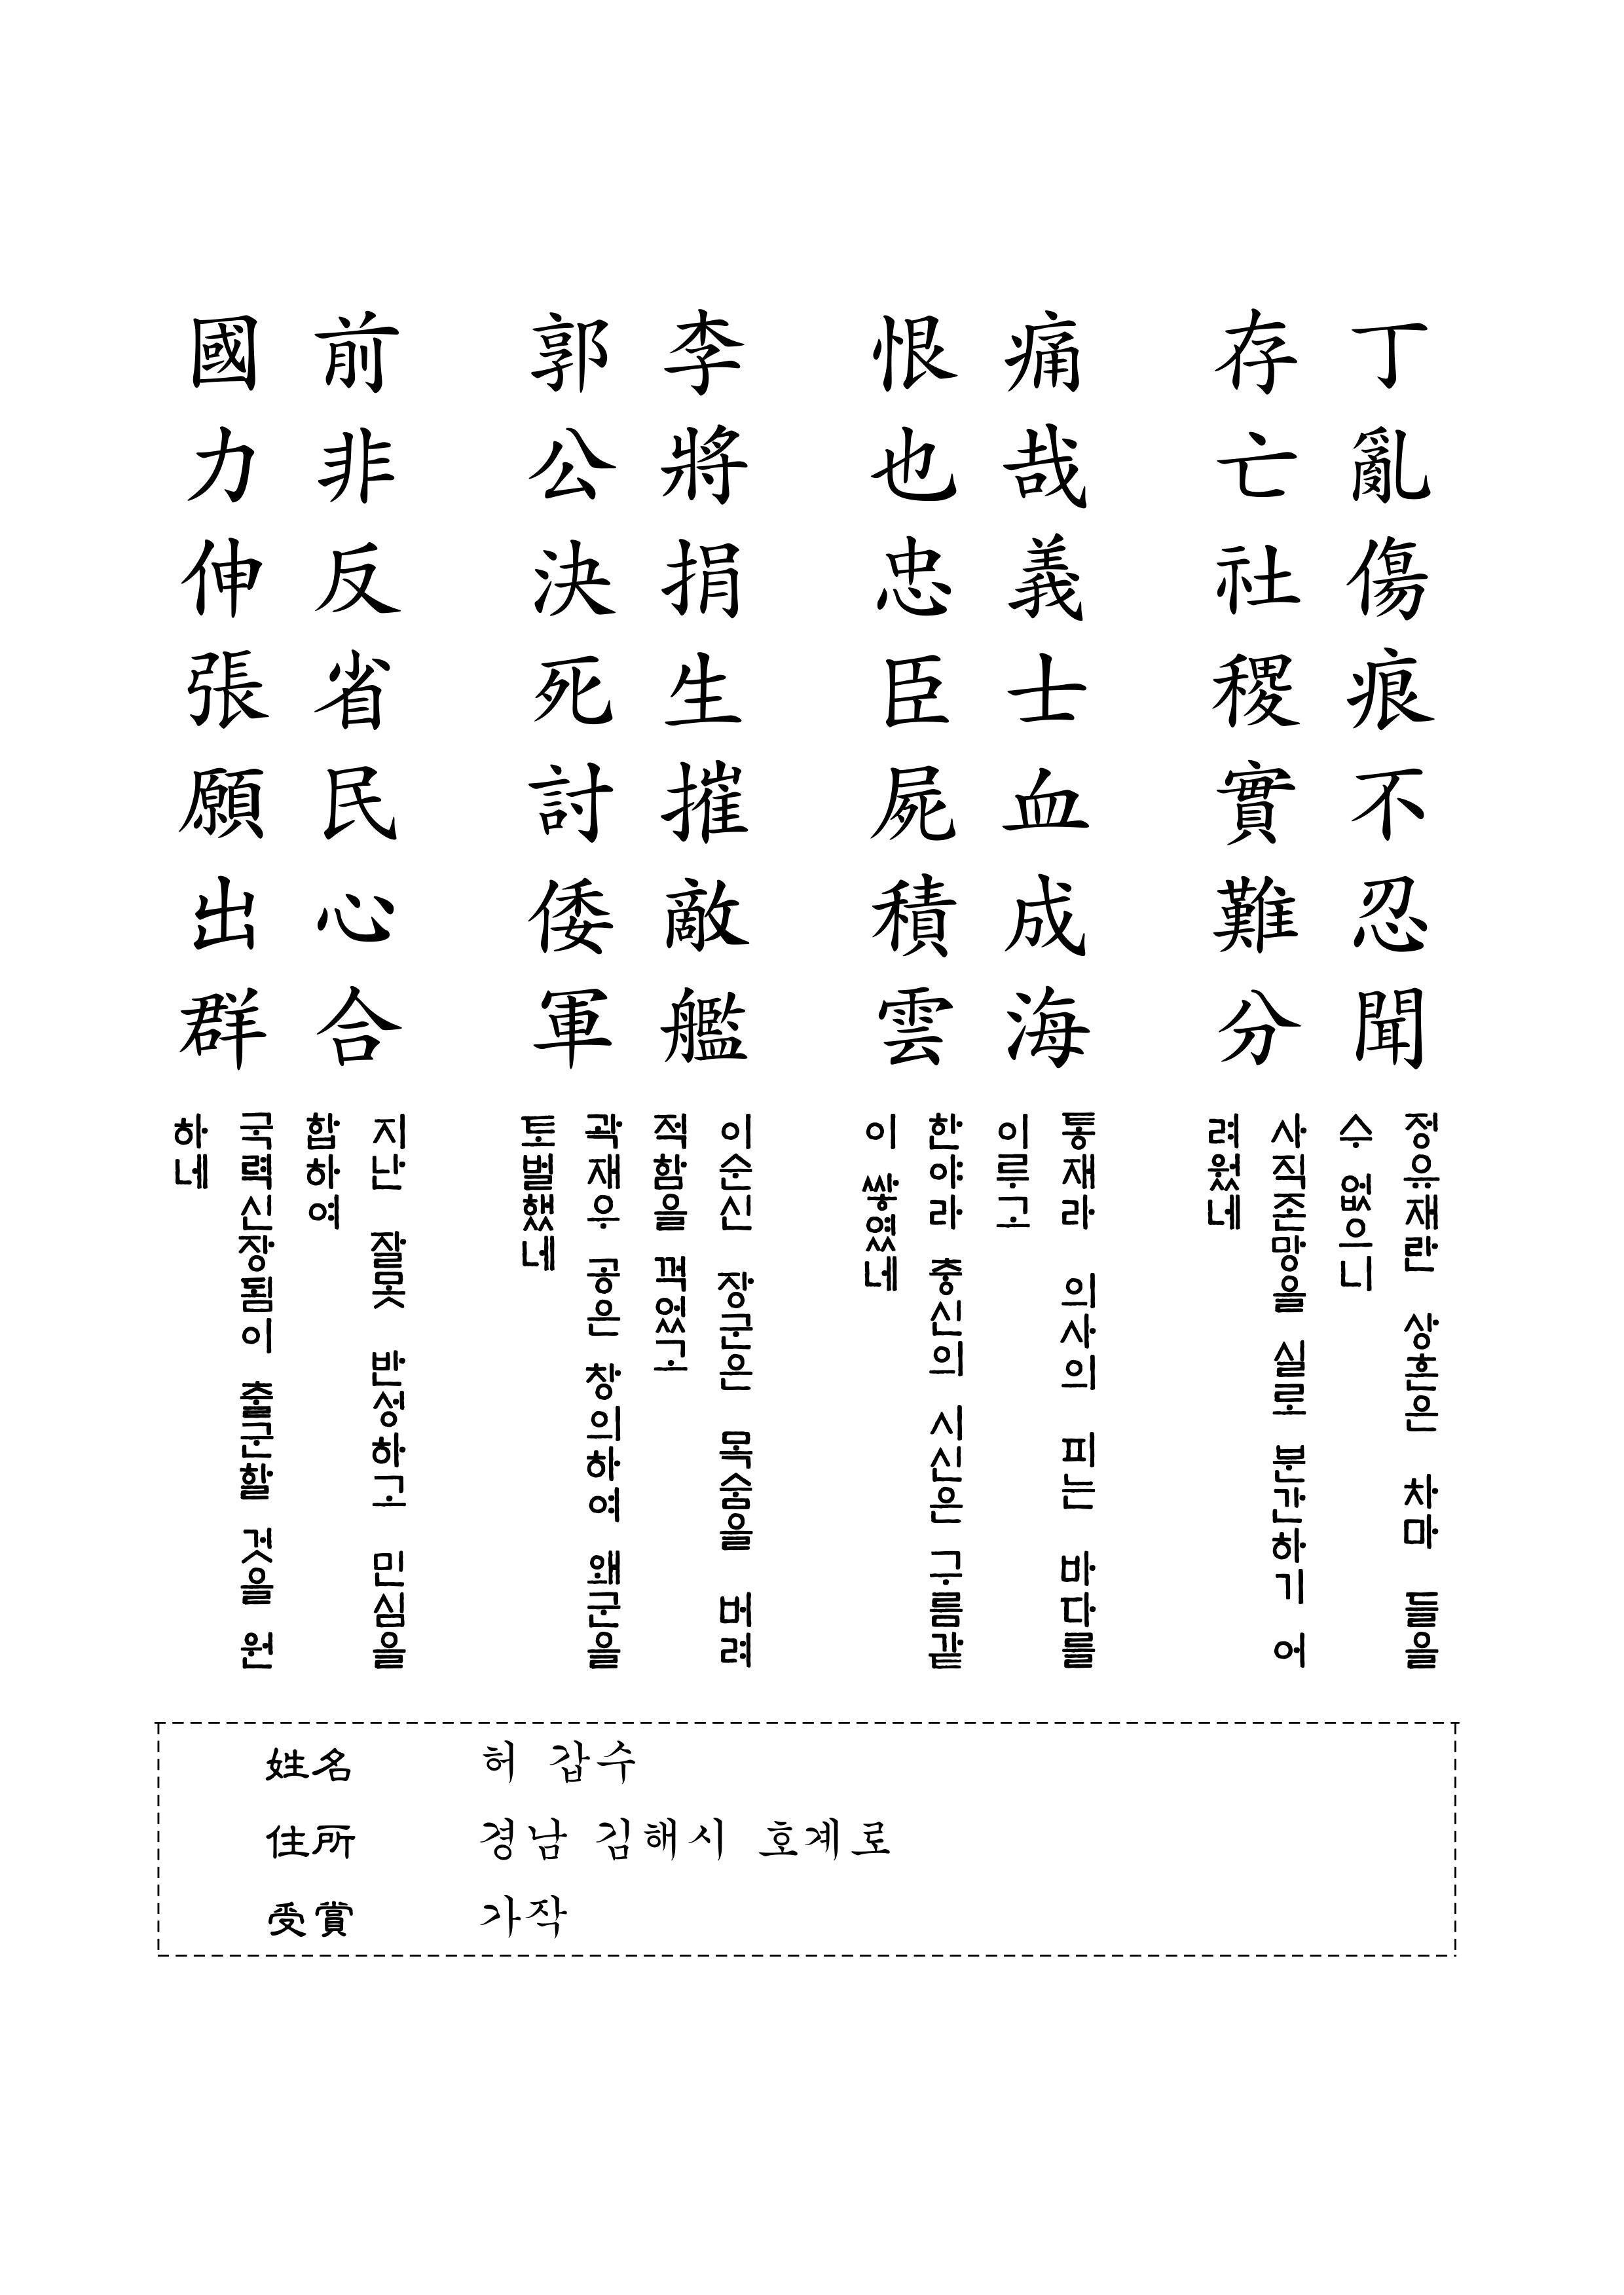 丁亂傷痕不忍聞
存亡社稷實難分
痛哉義士血成海
恨也忠臣屍積雲
李將捐生摧敵艦
郭公決死討倭軍
前非反省民心合
國力伸張願出群
정유재란 상흔은 차마 들을
수 없으니
사직존망을 실로 분간하기 어
려웠네
통재라 의사의 피는 바다를
이루고
한야라 충신의 시신은 구름같
이 쌓였네
이순신 장군은 목숨을 버려
적함을 꺽었고
곽재우 공은 창의하여 왜군을
토벌했네
지난 잘못 반성하고 민심을
합하여
국력신장됨이 출군할 것을 원
하네
姓名 허 갑수
住所 경남 김해시 호계로
受賞 가작